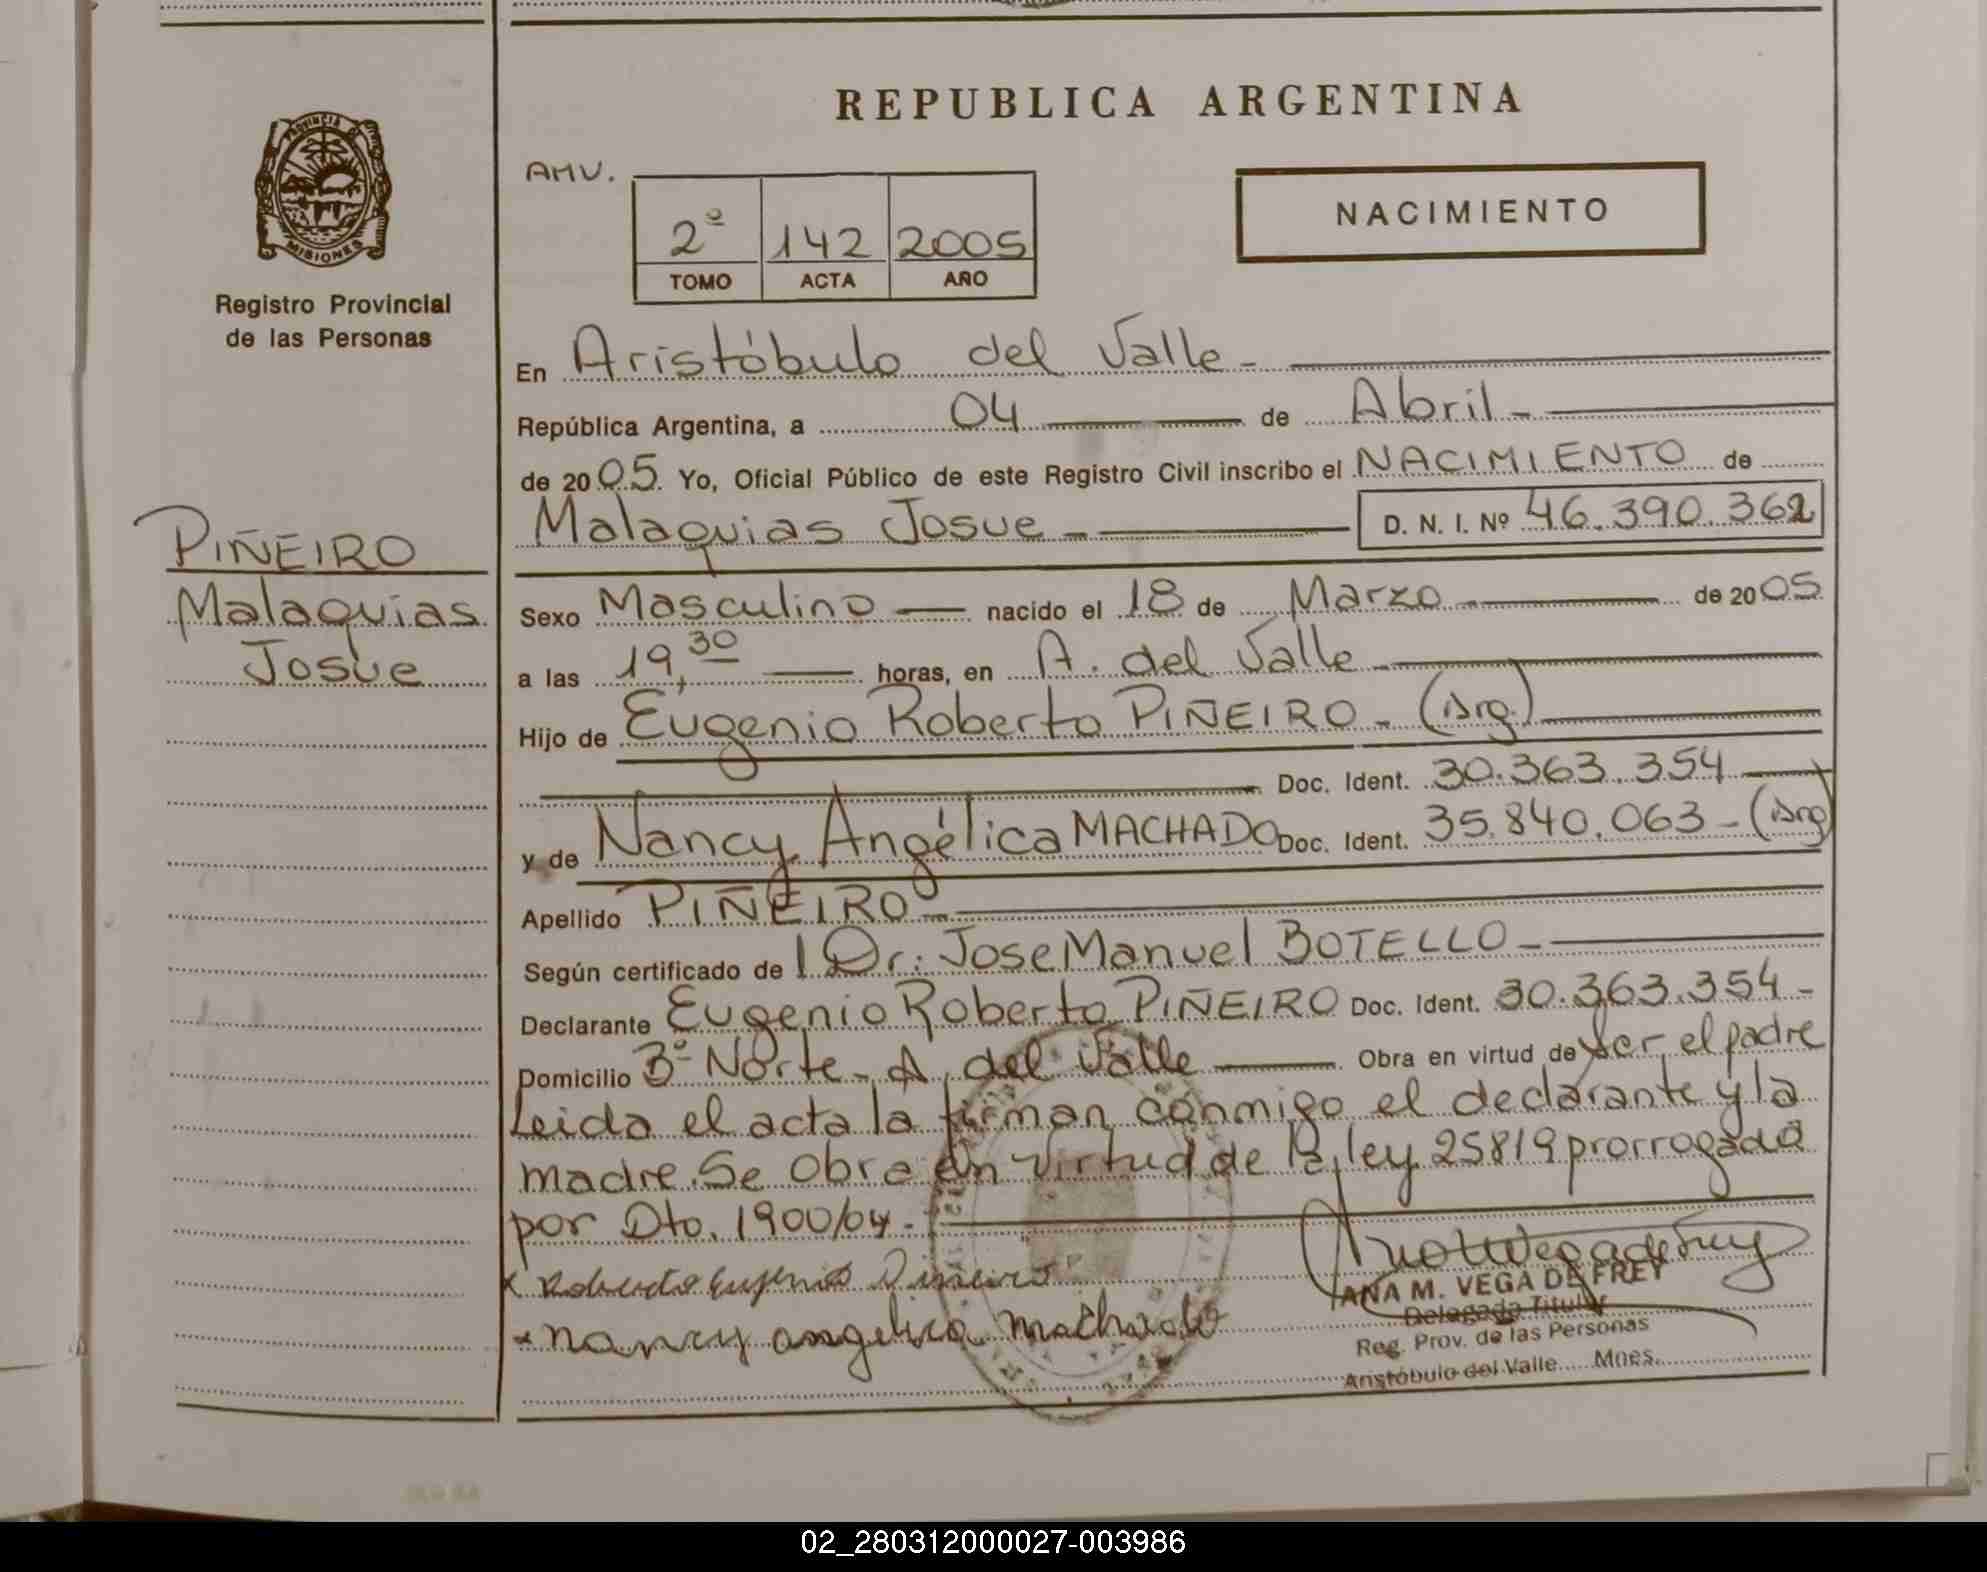 PROVINCIA DE
MISIONES
Registro Provincial
de las Personas
PIÑEIRO
Malaquias
Josue
REPUBLICA ARGENTINA
AMV.
2º 142 2005
TOMO ACTA AÑO
NACIMIENTO
En Aristóbulo del Valle -
República Argentina, a 04 de Abril -
de 2005 Yo, Oficial Público de este Registro Civil inscribo el NACIMIENTO de
Malaquias Josue - D. N. I. Nº 46.390.362
Sexo Masculino nacido el 18 de Marzo de 2005
a las 19,30 horas, en A. del Valle -
Hijo de Eugenio Roberto PIÑEIRO - (Arg)
Doc. Ident. 30.363.354
y de Nancy Angélica MACHADO Doc. Ident. 35.840.063 - (Arg)
Apellido PIÑEIRO -
Según certificado de Dr: Jose Manuel BOTELLO -
Declarante Eugenio Roberto PIÑEIRO Doc. Ident. 30.363.354 -
Domicilio 3º Norte - A. del Valle Obra en virtud de ser el padre
Leida el acta la firman conmigo el declarante y la
madre. Se obra en virtud de la ley 25819 prorrogada
por Dto. 1900/04 -
x Roberto Eugenio Piñeiro
x nancy angelica machado
ANA M. VEGA DE FREY
Delegada Titular
Reg. Prov. de las Personas
Aristóbulo del Valle Mnes.
02_280312000027-003986